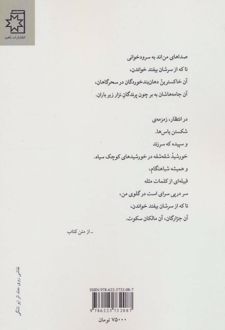 انتشارات ناهید
صداهای من‌اند به سرودخوانی
تا که از سرشان بیفتد خواندن،
آن خاکسترین دهان‌بندخوردگان در سحرگاهان،
آن جامه‌هاشان به بر چون پرندگانِ نزار زیر باران.
در انتظار، زمزمه‌ی
شکستن یاس‌ها،
و سپیده که سر زند
خورشیدْ شقه‌شقه در خورشیدهای کوچک سیاه،
و همیشه شباهنگام،
قبیله‌ای از کلمات مثله
سر در پی سرای است در گلوی من،
تا که از سرشان بیفتد خواندن،
آن جزارگان، آن مالکان سکوت.
ـ از متن کتاب
ISBN: 978-622-5732-08-7
9786225732087
۷۵۰۰۰ تومان
نقاشی روی جلد اثر